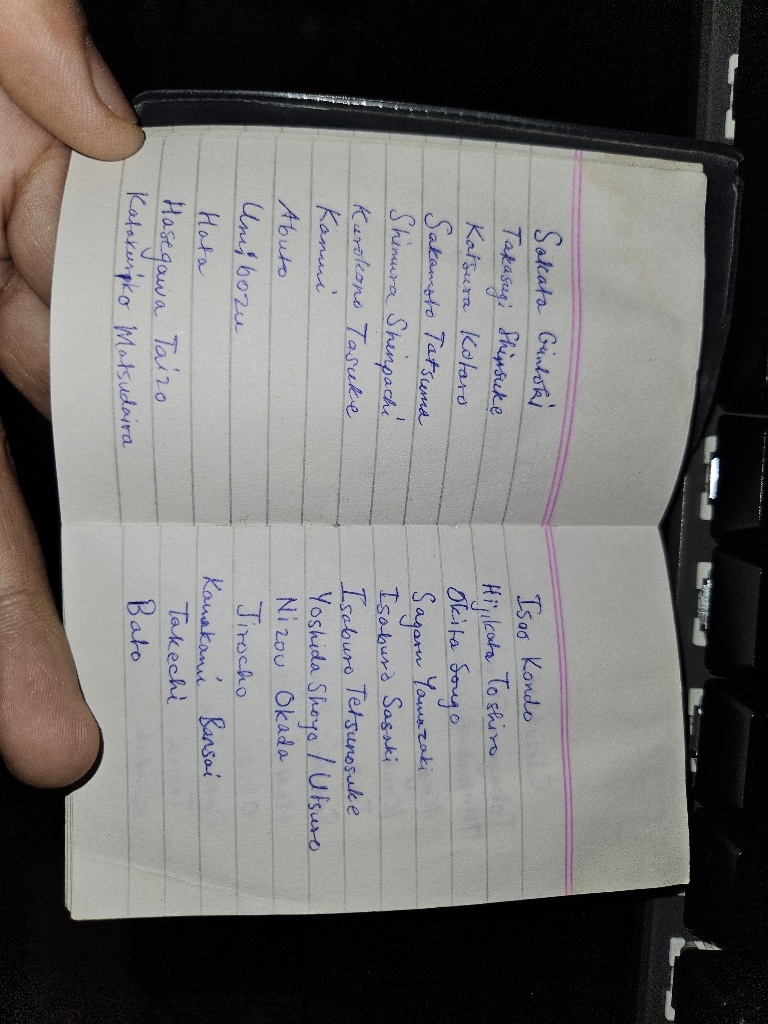 Sakata Gintoki
Takasugi Shinsuke
Katsura Kotaro
Sakamoto Tatsuma
Shimura Shinpachi
Kurokono Tasuke
Kamui
Abuto
Umibozu
Hata
Hasegawa Taizo
Katakuriko Matsudaira
Isao Kondo
Hijikata Toshiro
Okita Sougo
Sagaru Yamazaki
Isaburo Sasaki
Isaburo Tetsunosuke
Yoshida Shoyo / Utsuro
Nizou Okada
Jirocho
Kawakami Bansai
Takechi
Bato